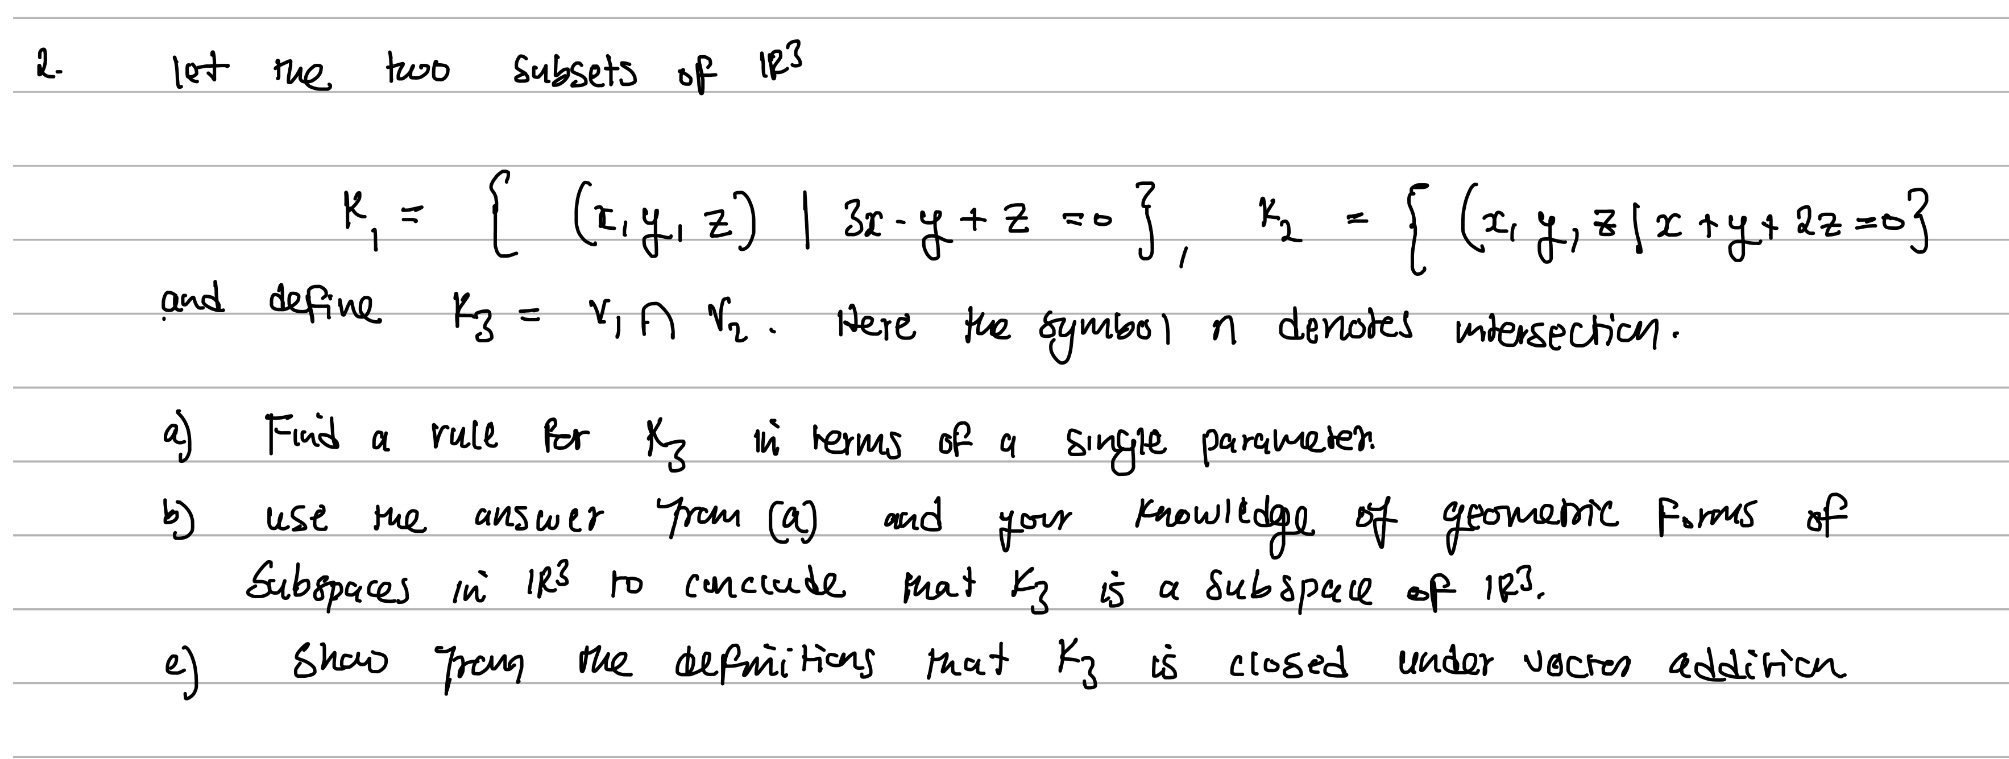 2. let the two subsets of ℝ³
K₁ = { (x, y, z) | 3x - y + z = 0 }, K₂ = { (x, y, z | x + y + 2z = 0 }
and define K₃ = V₁ ∩ V₂. Here the symbol n denotes intersection.
a) Find a rule for K₃ in terms of a single parameter.
b) use the answer from (a) and your knowledge of geometric forms of
Subspaces in ℝ³ to conclude that K₃ is a subspace of ℝ³.
c) Show from the definitions that K₃ is closed under vector addition